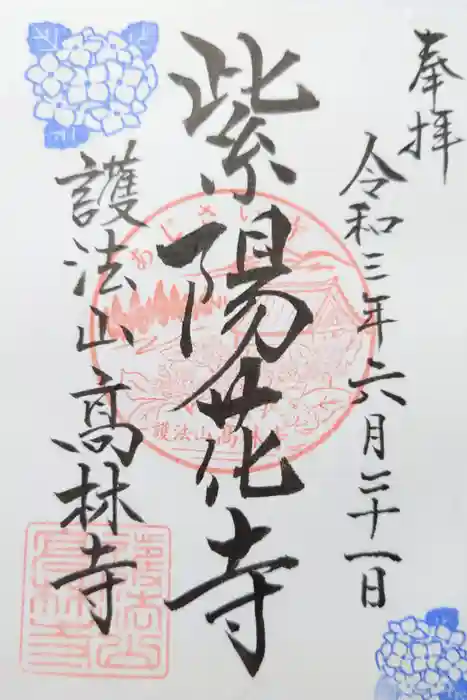 奉拝
令和三年六月二十一日
紫陽花寺
護法山高林寺
あじさいで
護法山高林寺